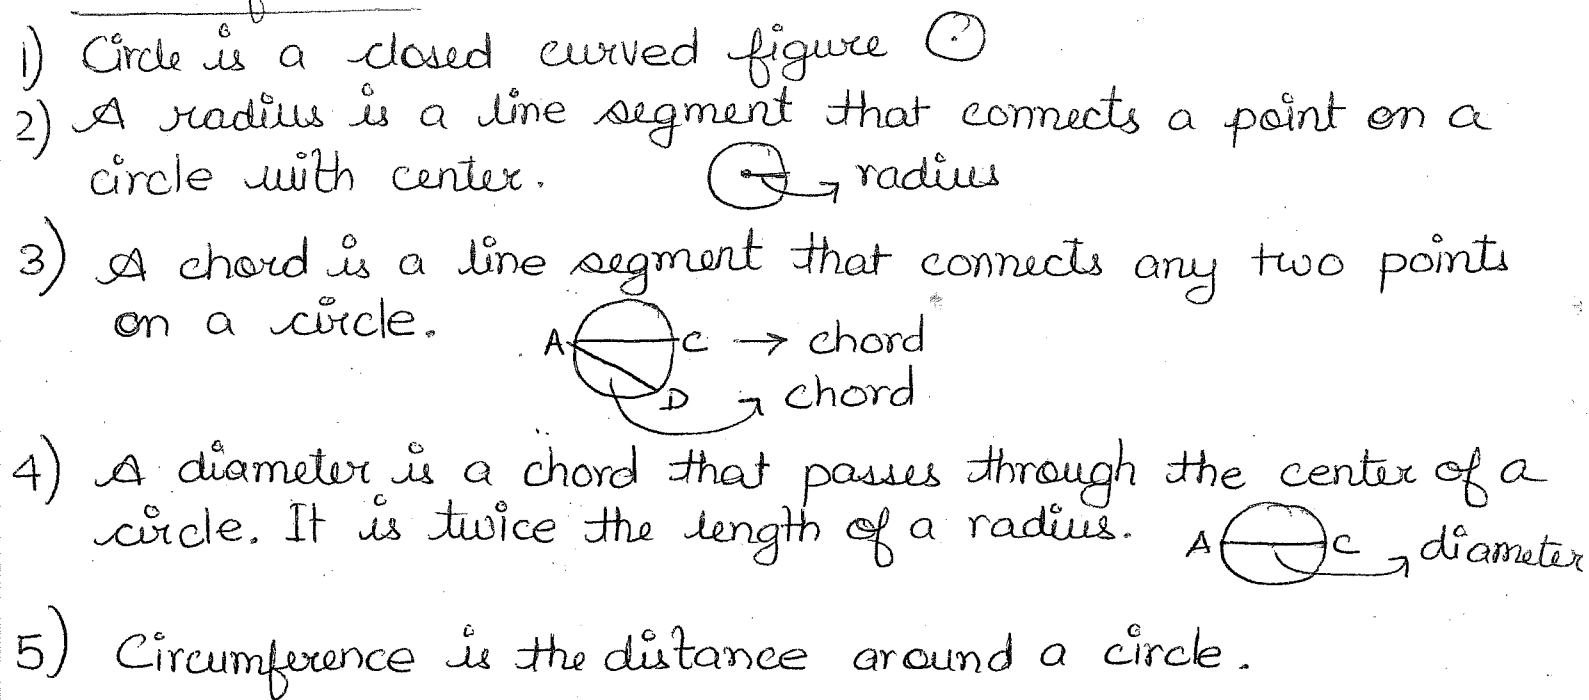 1) Circle is a closed curved figure
2) A radius is a line segment that connects a point on a
circle with center.
radius
3) A chord is a line segment that connects any two points
on a circle.
A C → chord
D chord
4) A diameter is a chord that passes through the center of a
circle. It is twice the length of a radius.
A C diameter
5) Circumference is the distance around a circle.